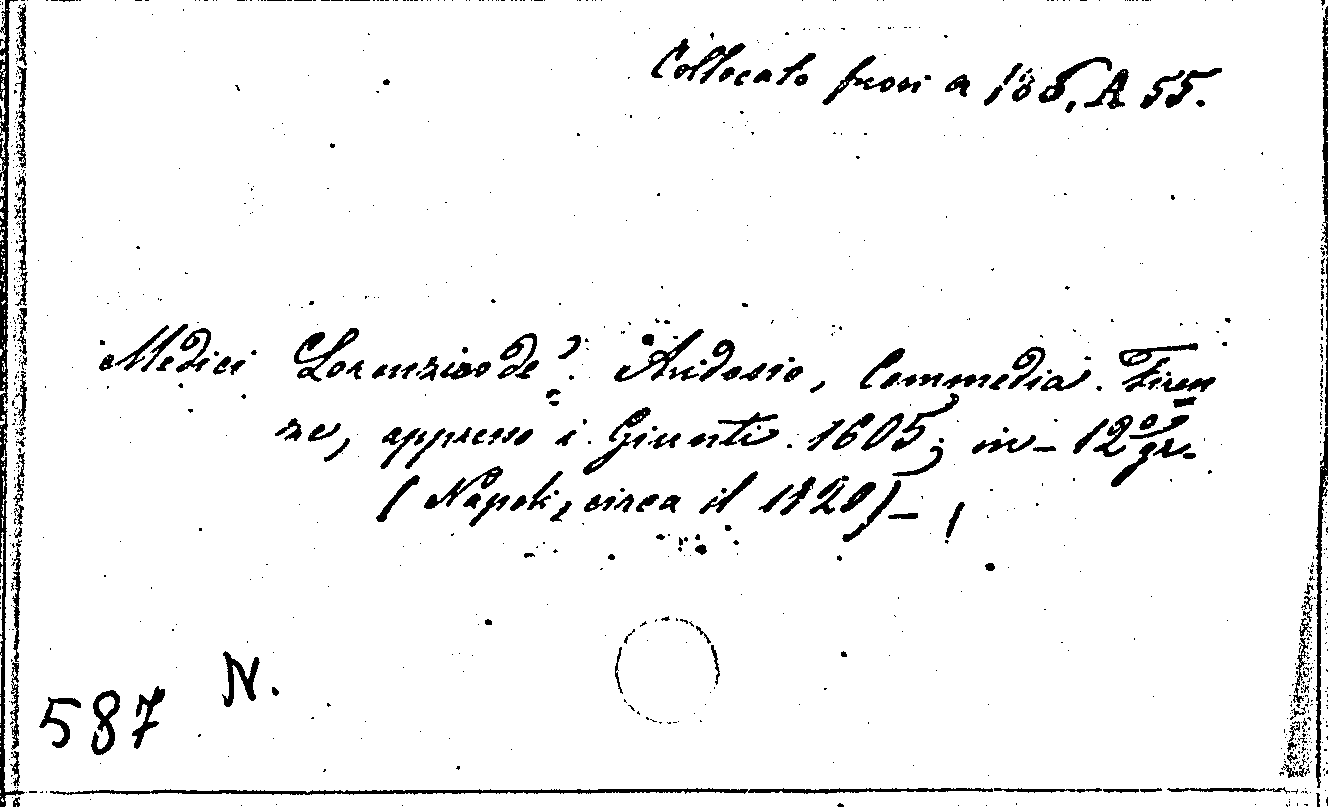 Collocato fuori a 188, A 55.
Medici Lorenzino de'. Aridosio, Commedia. Firen
ze, appresso i Giunti. 1605; in-12º gr.
(Napoli, circa il 1820) –
N.
587